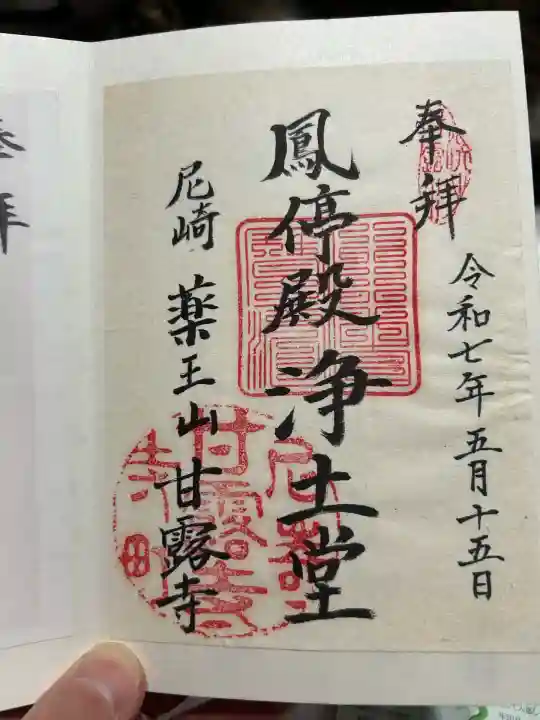 奉拝
令和七年五月十五日
鳳停殿浄土堂
尼崎 薬王山甘露寺